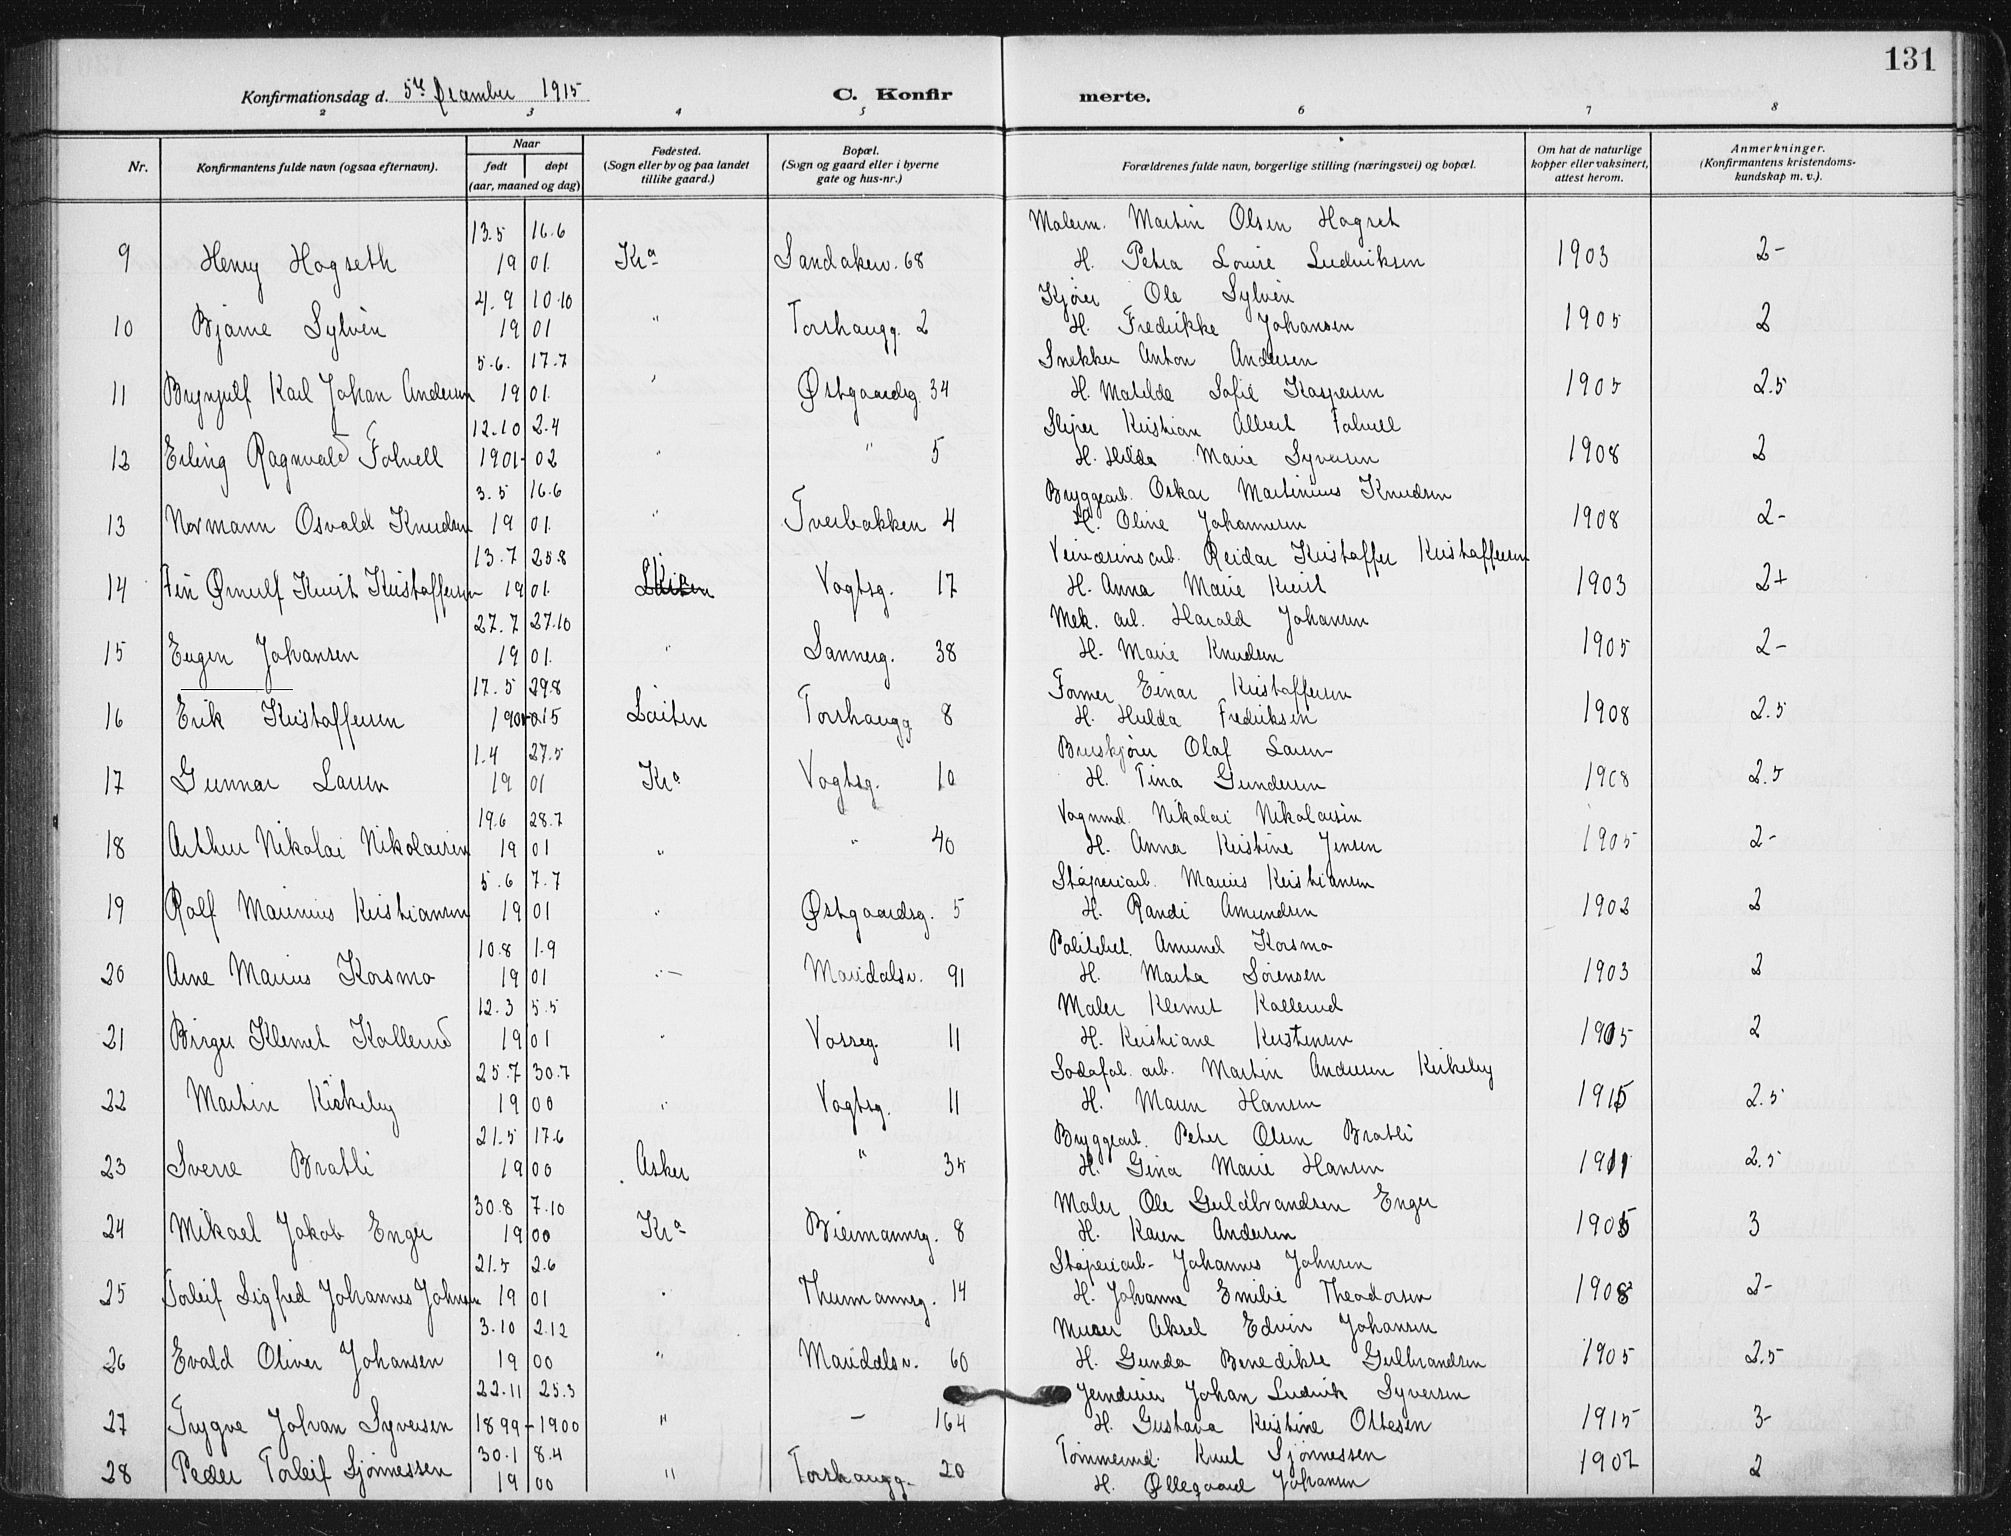 131
Konfirmationsdag d. 5te December 1915
C. Konfirmerte.
2 3 4 5 6 7 8
Nr.
Konfirmantens fulde navn (ogsaa efternavn).
Naar
født døpt
(aar, maaned og dag)
Fødested.
(Sogn eller by og paa landet
tillike gaard.)
Bopæl.
(Sogn og gaard eller i byerne
gate og hus-nr.)
Forældrenes fulde navn, borgerlige stilling (næringsvei) og bopæl.
Om hat de naturlige
kopper eller vaksinert,
attest herom.
Anmerkninger.
(Konfirmantens kristendoms-
kundskap m. v.).
13.5 16.6 Malerm. Martin Olsen Hagset
9 Henry Hogseth 19 01. Kra Sandakerv. 68 H. Petra Louise Ludviksen 1903 2-
4.9 10.10 Kjører Ole Sylvèn
10 Bjarne Sylvèn 19 01 " Torshaugg. 2 H. Fredrikke Johansen 1905 2
5.6. 17.7 Snekker Anton Andersen
11 Brynjulf Karl Johan Andersen 19 01. " Østgaardsg. 34 H. Matilde Sofie Kaspersen 1905 2.5
12.10 2.4 Sliper Kristian Albert Folvell
12 Erling Ragnvald Folvell 1901- 02 " " 5 H. Hilda Marie Syversen 1908 2
3.5 16.6 Bryggearb. Oskar Martinius Knudsen
13 Normann Osvald Knudsen 19 01. " Tverbakken 4 H. Oline Johannesen 1908 2-
13.7 25.8 Veivæsensarb. Reidar Kristoffer Kristoffersen
14 Finn Ørnulf Kvist Kristoffersen 19 01. Vogtsg. 17 H. Anna Marie Kvist 1903 2+
27.7 27.10 Mek. arb. Harald Johansen
15 Eugen Johansen 19 01. " Sannerg. 38 H. Marie Knudsen 1905 2-
17.5 29.8 Former Einar Kristoffersen
16 Erik Kristoffersen 1901-015 Løiten Torshaugg 8 H. Hulda Fredriksen 1908 2.5
1.4 27.5 Bruskjører Olaf Larsen
17 Gunnar Larsen 19 01 Kra Vogtsg. 10 H. Tina Gundersen 1908 2.5
19.6 28.7 Vognmd. Nikolai Nikolaisen
18 Arthur Nikolai Nikolaisen 19 01 " " 40 H. Anna Kristine Jensen 1905 2-
5.6 7.7 Støperiarb. Marius Kristiansen
19 Rolf Marinius Kristiansen 19 01 " Østgaardsg. 5 H. Randi Amundsen 1902 2
10.8 1.9 Politibet. Amund Korsmo
20 Arne Marius Korsmo 19 01 " Maridalsv. 91 H. Marta Sørensen 1903 2
12.3 5.5 Maler Klemet Kallerud
21 Birger Klemet Kallerud 19 01 " Vosseg. 11 H. Kristiane Kristensen 1915 2
25.7 30.7 Sodafab. arb. Martin Andersen Kirkeby
22 Martin Kirkeby 19 00 " Vogtsg. 11 H. Maren Hansen 1915 2.5
21.5 17.6 Bryggearb. Peter Olsen Bratli
23 Sverre Bratli 19 00 Asker " 35 H. Gina Marie Hansen 1911 2.5
30.8 7.10 Maler Ole Guldbrandsen Enger
24 Mikael Jakob Enger 19 00 Kra Biermannsg. 8 H. Karen Andersen 1905 3
21.5 2.6 Støperiarb. Johannes Johnsen
25 Torleif Sigfred Johannes Johnsen 19 01 " Thurmannsg. 14 H. Johanne Emilie Theodorsen 1908 2-
3.10 2.12 Murer Aksel Edvin Johansen
26 Evald Oliver Johansen 19 00 " Maridalsv. 60 H. Gunda Benedikte Gulbrandsen 1905 2.5
22.11 25.3 Jerndreier Johan Ludvik Syversen
27 Trygve Johan Syversen 1899-1900 " — 164 H. Gustava Kristine Ottesen 1915 3-
30.1 8.4 Tømmermd. Knut Sjønnessen
28 Peder Torleif Sjønnessen 19 00 " Torshaugg. 20 H. Øllegaard Johansen 1902 2